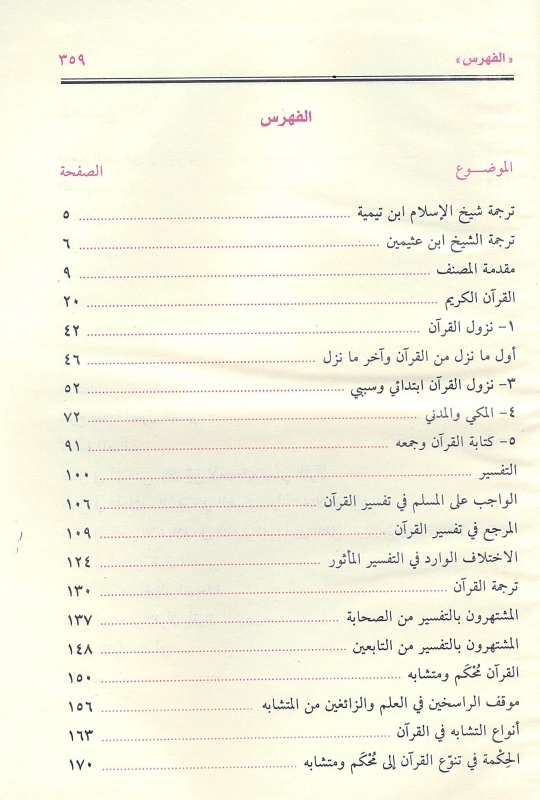 «الفهرس» ٣٥٩
الفهرس
الموضـــوع الصفحة
ترجمة شيخ الإسلام ابن تيمية ........ ٥
ترجمة الشيخ ابن عثيمين ........ ٦
مقدمة المصنف ........ ٩
القرآن الكريم ........ ٢٠
١- نزول القرآن ........ ٤٢
أول ما نزل من القرآن وآخر ما نزل ........ ٤٦
٣- نزول القرآن ابتدائي وسببي ........ ٥٢
٤- المكي والمدني ........ ٧٢
٥- كتابة القرآن وجمعه ........ ٩١
التفسير ........ ١٠٠
الواجب على المسلم في تفسير القرآن ........ ١٠٦
المرجع في تفسير القرآن ........ ١٠٩
الاختلاف الوارد في التفسير المأثور ........ ١٢٤
ترجمة القرآن ........ ١٣٠
المشتهرون بالتفسير من الصحابة ........ ١٣٧
المشتهرون بالتفسير من التابعين ........ ١٤٨
القرآن مُحْكَم ومتشابه ........ ١٥٠
موقف الراسخين في العلم والزائغين من المتشابه ........ ١٥٦
أنواع التشابه في القرآن ........ ١٦٣
الحِكْمة في تنوّع القرآن إلى مُحْكَم ومتشابه ........ ١٧٠